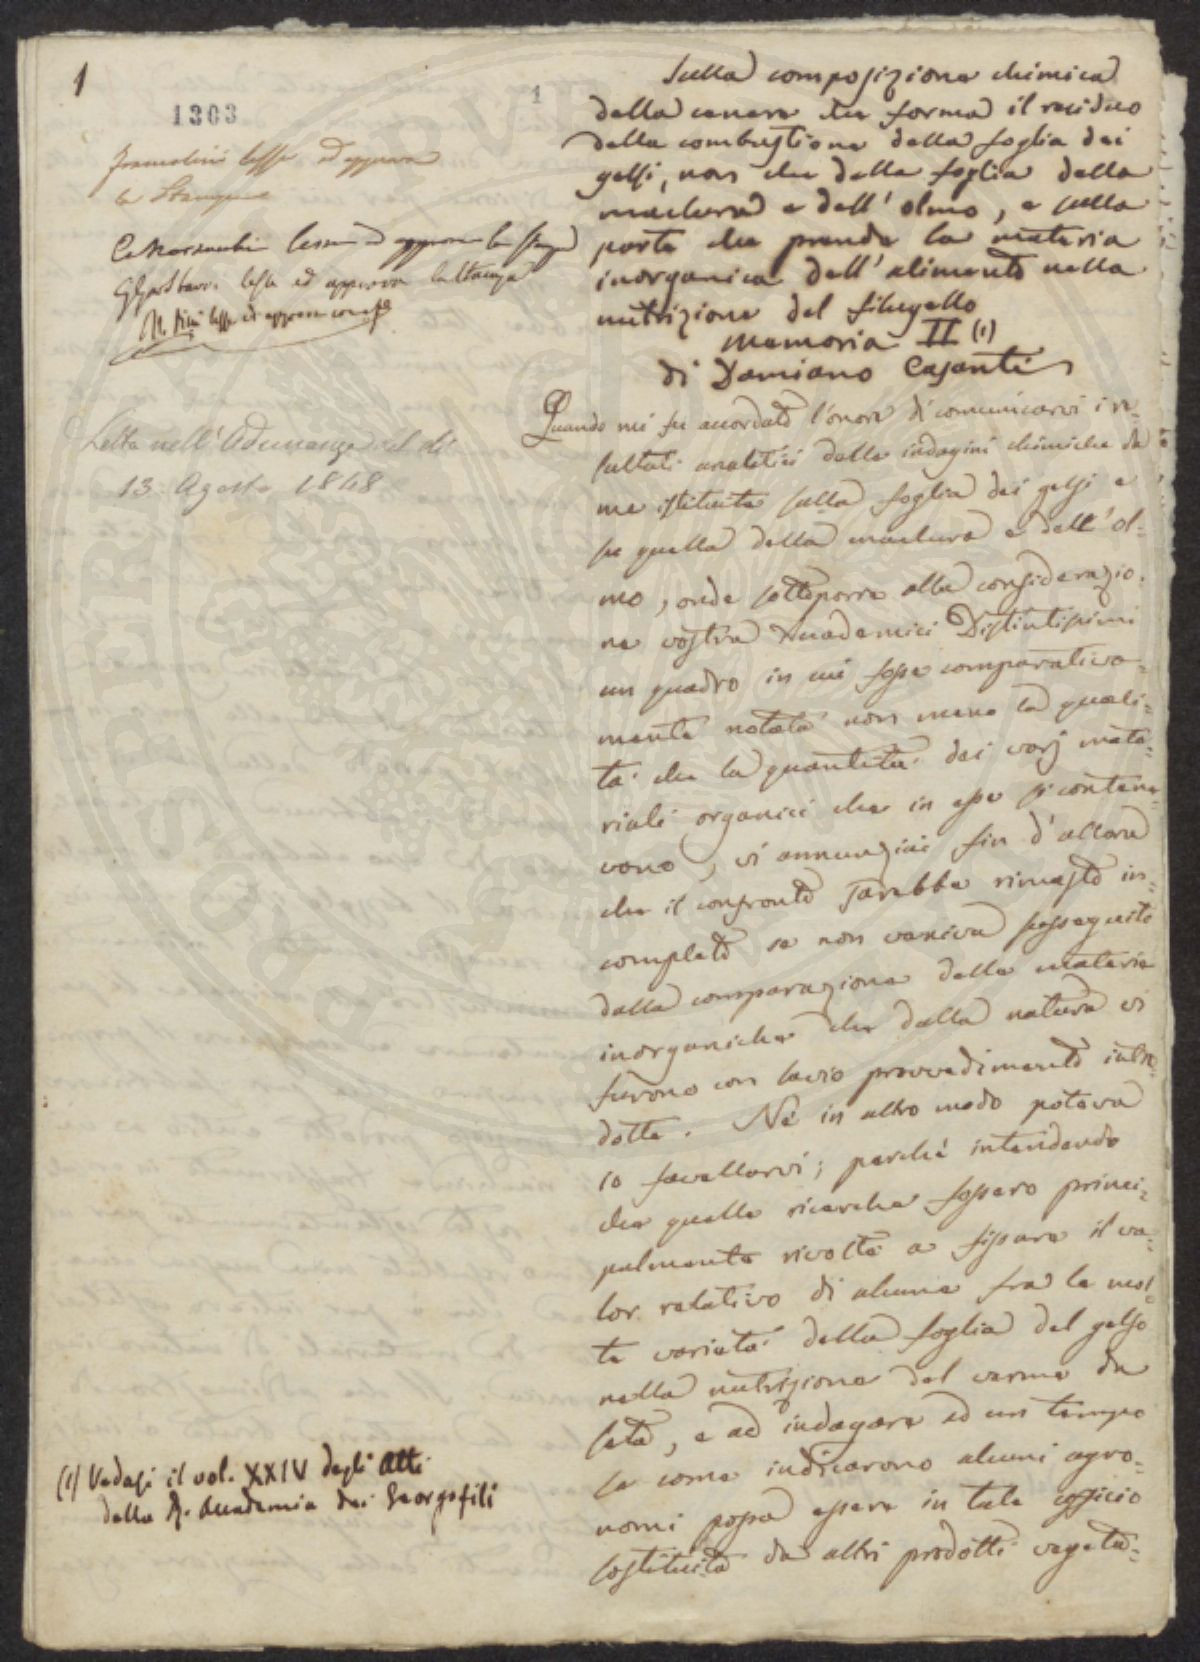 1
1303
1
lesse ed approva
la Stampa
C. Marzucchi lesse ed approva la stampa
lesse ed approva la stampa
lesse ed approva come sopra
Letta nell'Adunanza del dì
13 Agosto 1848
Sulla composizione chimica
della cenere che forma il residuo
della combustione della foglia dei
gelsi, non che della foglia della
maclura e dell'olmo, e sulla
parte che prende la materia
inorganica dell'alimento nella
nutrizione del filugello
Memoria II (1)
di Damiano Casanti
Quando mi fu accordato l'onore di comunicarvi i re-
sultati analitici delle indagini chimiche da
me istituite sulla foglia dei gelsi e
su quella della maclura e dell'ol-
mo, onde sottoporre alla considerazio-
ne vostra Accademici Distintissimi
un quadro in cui fosse comparativa-
mente notata non meno la quali-
tà che la quantità dei varj mate-
riali organici che in esse si contene-
vano, vi annunziai fin d'allora
che il confronto sarebbe rimasto in-
completo se non veniva susseguito
dalla comparazione delle materie
inorganiche che dalla natura vi
furono con savio provvedimento intro-
dotte. Nè in altro modo poteva
io favellarvi; perchè intendendo
che quelle ricerche fossero princi-
palmente rivolte a fissare il va-
lor relativo di alcune fra le mol-
te varietà della foglia del gelso
nella nutrizione del verme da
seta, e ad indagare ad un tempo
se come indicarono alcuni agro-
nomi possa essere in tale officio
sostituita da altri prodotti vegeta-
(1) Vedasi il vol. XXIV degli Atti
della R. Accademia dei Georgofili